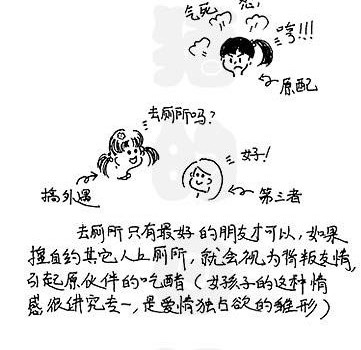 气死
哼!!!
原配
去厕所吗?
好!
搞外遇
第三者
去厕所只有最好的朋友才可以,如果
擅自约其它人上厕所,就会视为背叛友情,
引起原伙伴的吃醋(女孩子的这种情
感很讲究专一,是爱情独占欲的雏形)